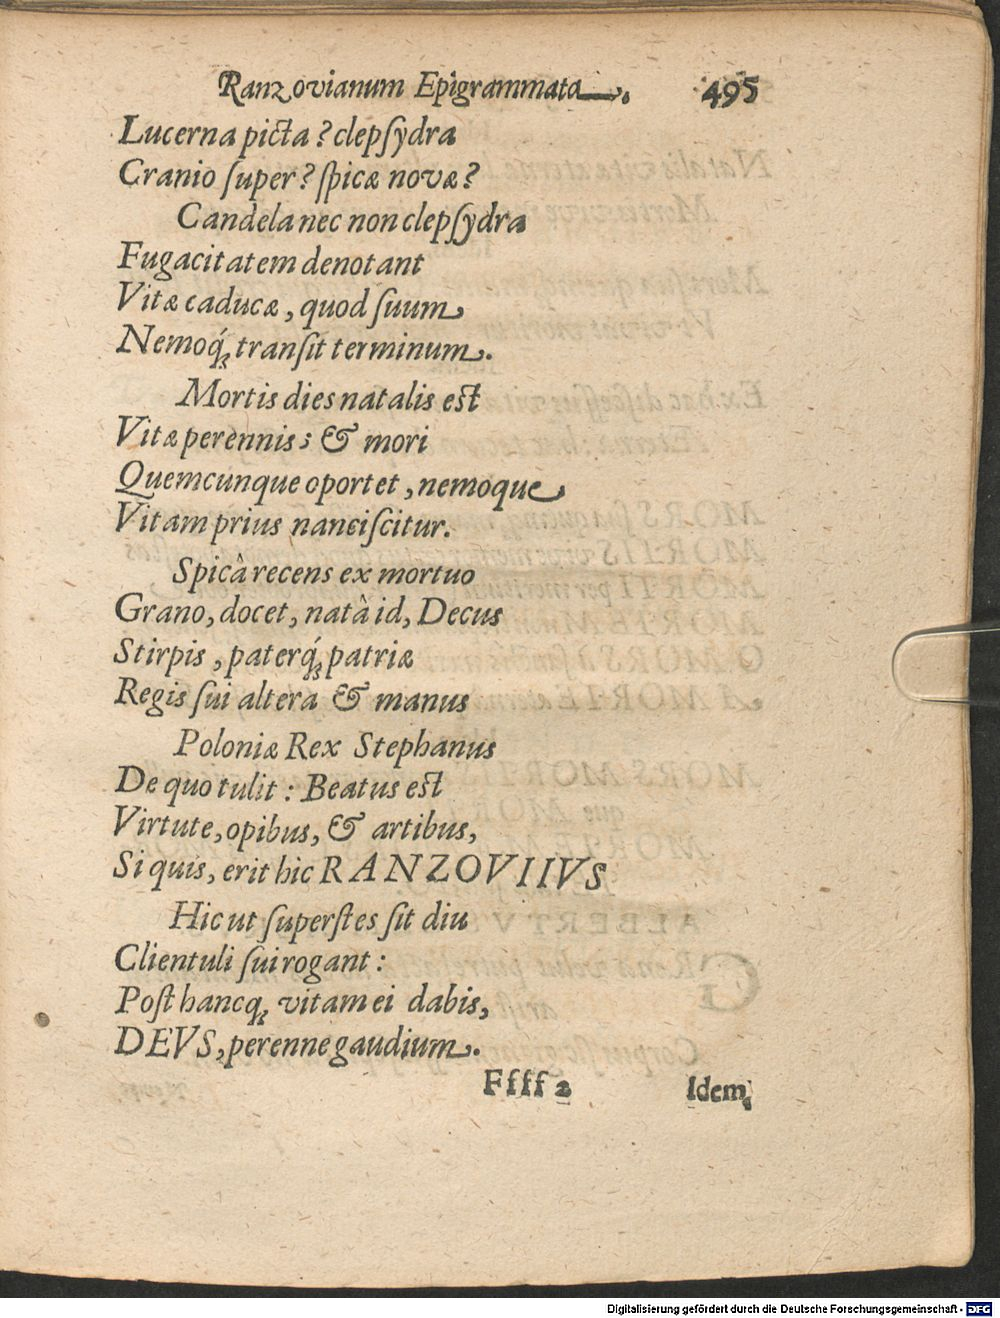 Ranzovianum Epigrammata. 495
Lucerna picta? clepſydra
Cranio ſuper? ſpicæ novæ?
Candela nec non clepſydra
Fugacitatem denotant
Vitæ caducæ, quod ſuum
Nemoq́ꝫ tranſit terminum.
Mortis dies natalis est
Vitæ perennis; & mori
Quemcunque oportet, nemoque
Vitam prius nanciſcitur.
Spicâ recens ex mortuo
Grano, docet, natâ id, Decus
Stirpis, paterq́ꝫ patriæ
Regis ſui altera & manus
Poloniæ Rex Stephanus
De quo tulit: Beatus est
Virtute, opibus, & artibus,
Si quis, erit hic RANZOVIIVS
Hic ut ſuperſtes ſit diu
Clientuli ſui rogant:
Poſt hancqꝫ vitam ei dabis,
DEVS, perenne gaudium.
Ffff 2 Idem
Digitalisierung gefördert durch die Deutsche Forschungsgemeinschaft - DFG